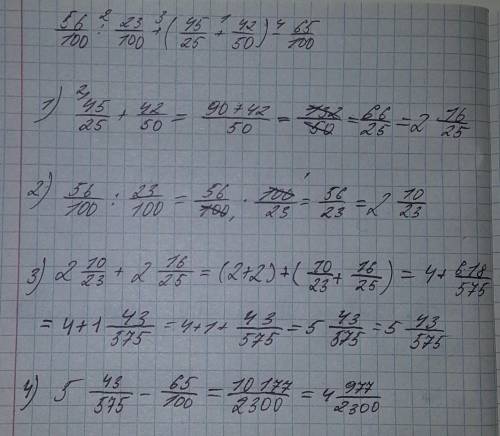 56/100 :² 23/100 +³ (45/25 +¹ 42/50) -⁴ 65/100
1) ²⁾45/25 + 42/50 = (90+42)/50 = 132/50 = 66/25 = 2 16/25
2) 56/100 : 23/100 = 56/100₁ · 100¹/23 = 56/23 = 2 10/23
3) 2 10/23 + 2 16/25 = (2+2)+(10/23 + 16/25) = 4+618/575
= 4+1 43/575 = 4+1+ 43/575 = 5 43/575 = 5 43/575
4) 5 43/575 - 65/100 = 10177/2300 = 4 977/2300